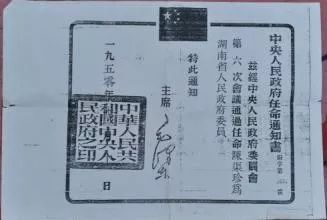 中央人民政府任命通知書
府字第 號
茲經中央人民政府委員會
第六次會議通過任命陳渠珍爲
湖南省人民政府委員
特此通知
主席
毛澤東
一九五零年
日
中華人民共
和國中央人
民政府之印